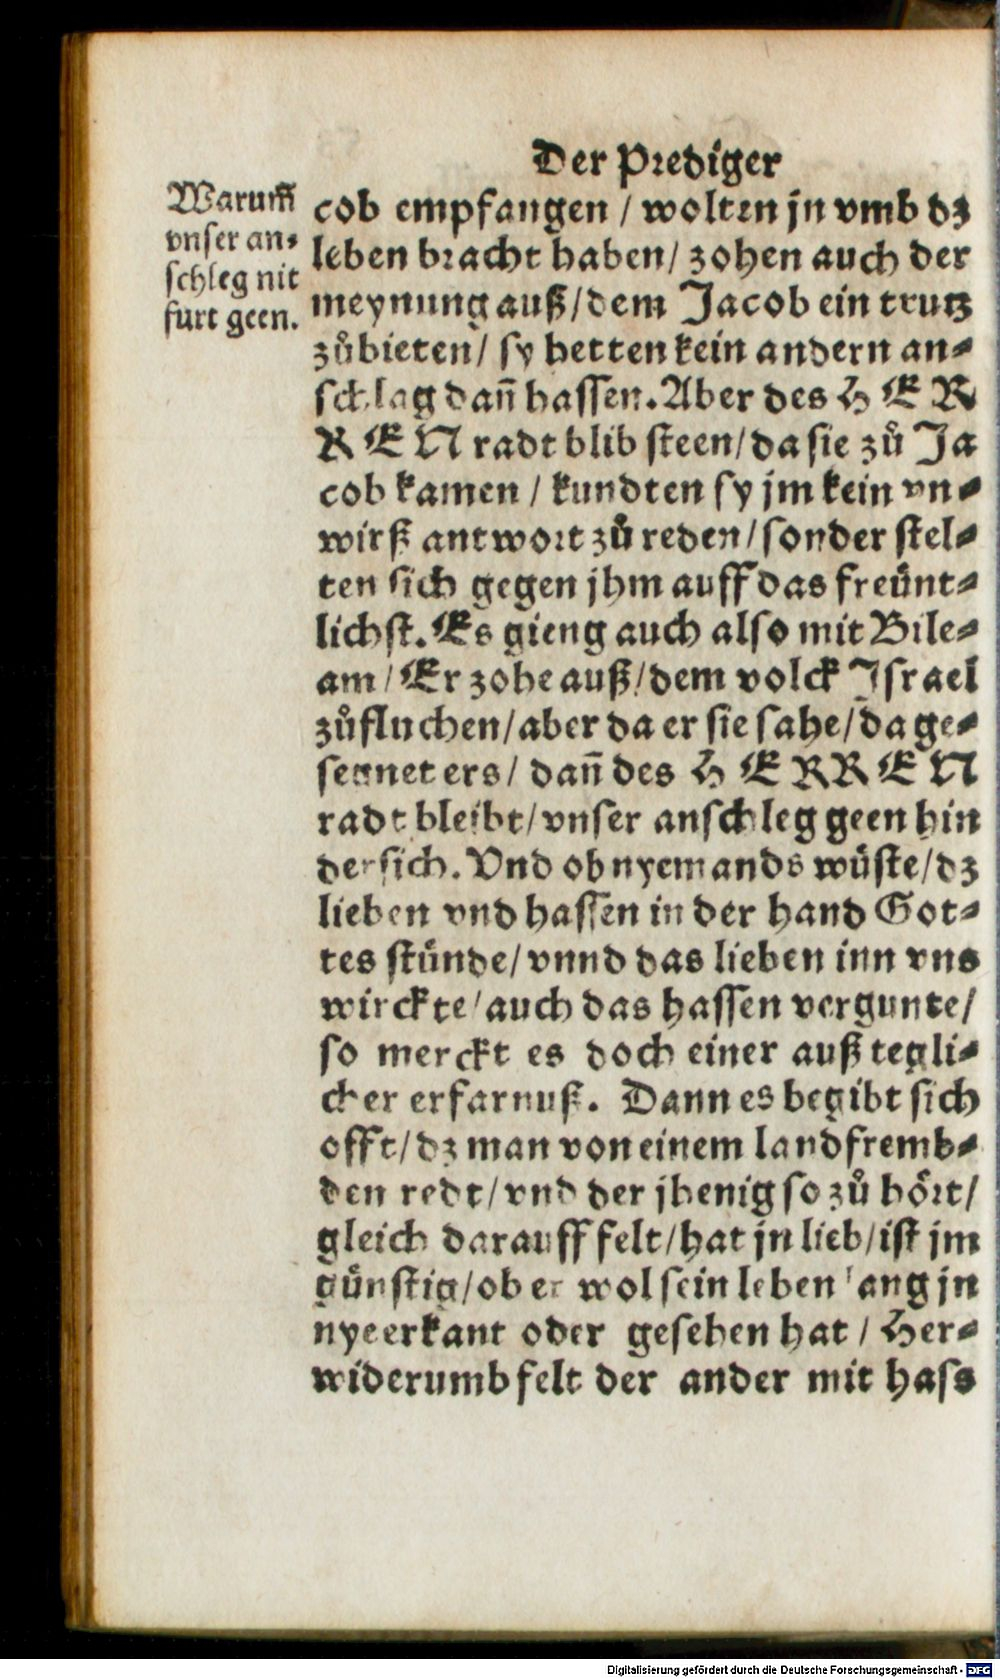 Der Prediger
Warum̃
vnser an⸗
schleg nit
furt geen.
cob empfangen / wolten jn vmb dz
leben bracht haben / zohen auch der
meynung auß / dem Jacob ein trutz
zů bieten / sy hetten kein andern an⸗
schlag dañ hassen. Aber des H E R
R E N radt blib steen / da sie zů Ja
cob kamen / kundten sy jm kein vn⸗
wirß antwort zů reden / sonder stel⸗
ten sich gegen jhm auff das freünt⸗
lichst. Es gieng auch also mit Bile⸗
am / Er zohe auß / dem volck Israel
zůfluchen / aber da er sie sahe / da ge⸗
segnet ers / dañ des H E R R E N
radt bleibt / vnser anschleg geen hin
dersich. Vnd ob nyemands wüste / dz
lieben vnd hassen in der hand Got⸗
tes stünde / vnnd das lieben inn vns
wirckte / auch das hassen vergunte /
so merckt es doch einer auß tegli⸗
cher erfarnuß. Dann es begibt sich
offt / dz man von einem land fremb⸗
den redt / vnd der jhenig so zů hört /
gleich darauff felt / hat jn lieb / ist jm
günstig / ob er wol sein leben lang jn
nye erkant oder gesehen hat / Her⸗
widerumb felt der ander mit hass
Digitalisierung gefördert durch die Deutsche Forschungsgemeinschaft - DFG